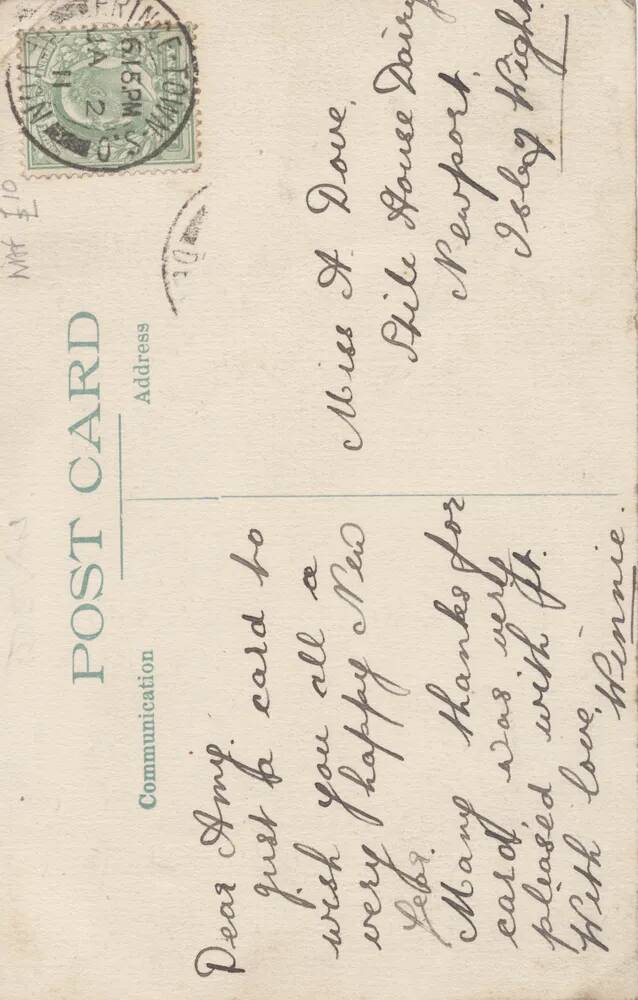 POST CARD
Communication
Address
6 15.PM
JA 2
11
£10
Dear Amy.
just a card to
wish you all a
very happy New
Year.
Many thanks for
card was very
pleased with it.
With love,
Winnie.
Miss A Dove,
House Dairy
Newport,
Isle of Wight.